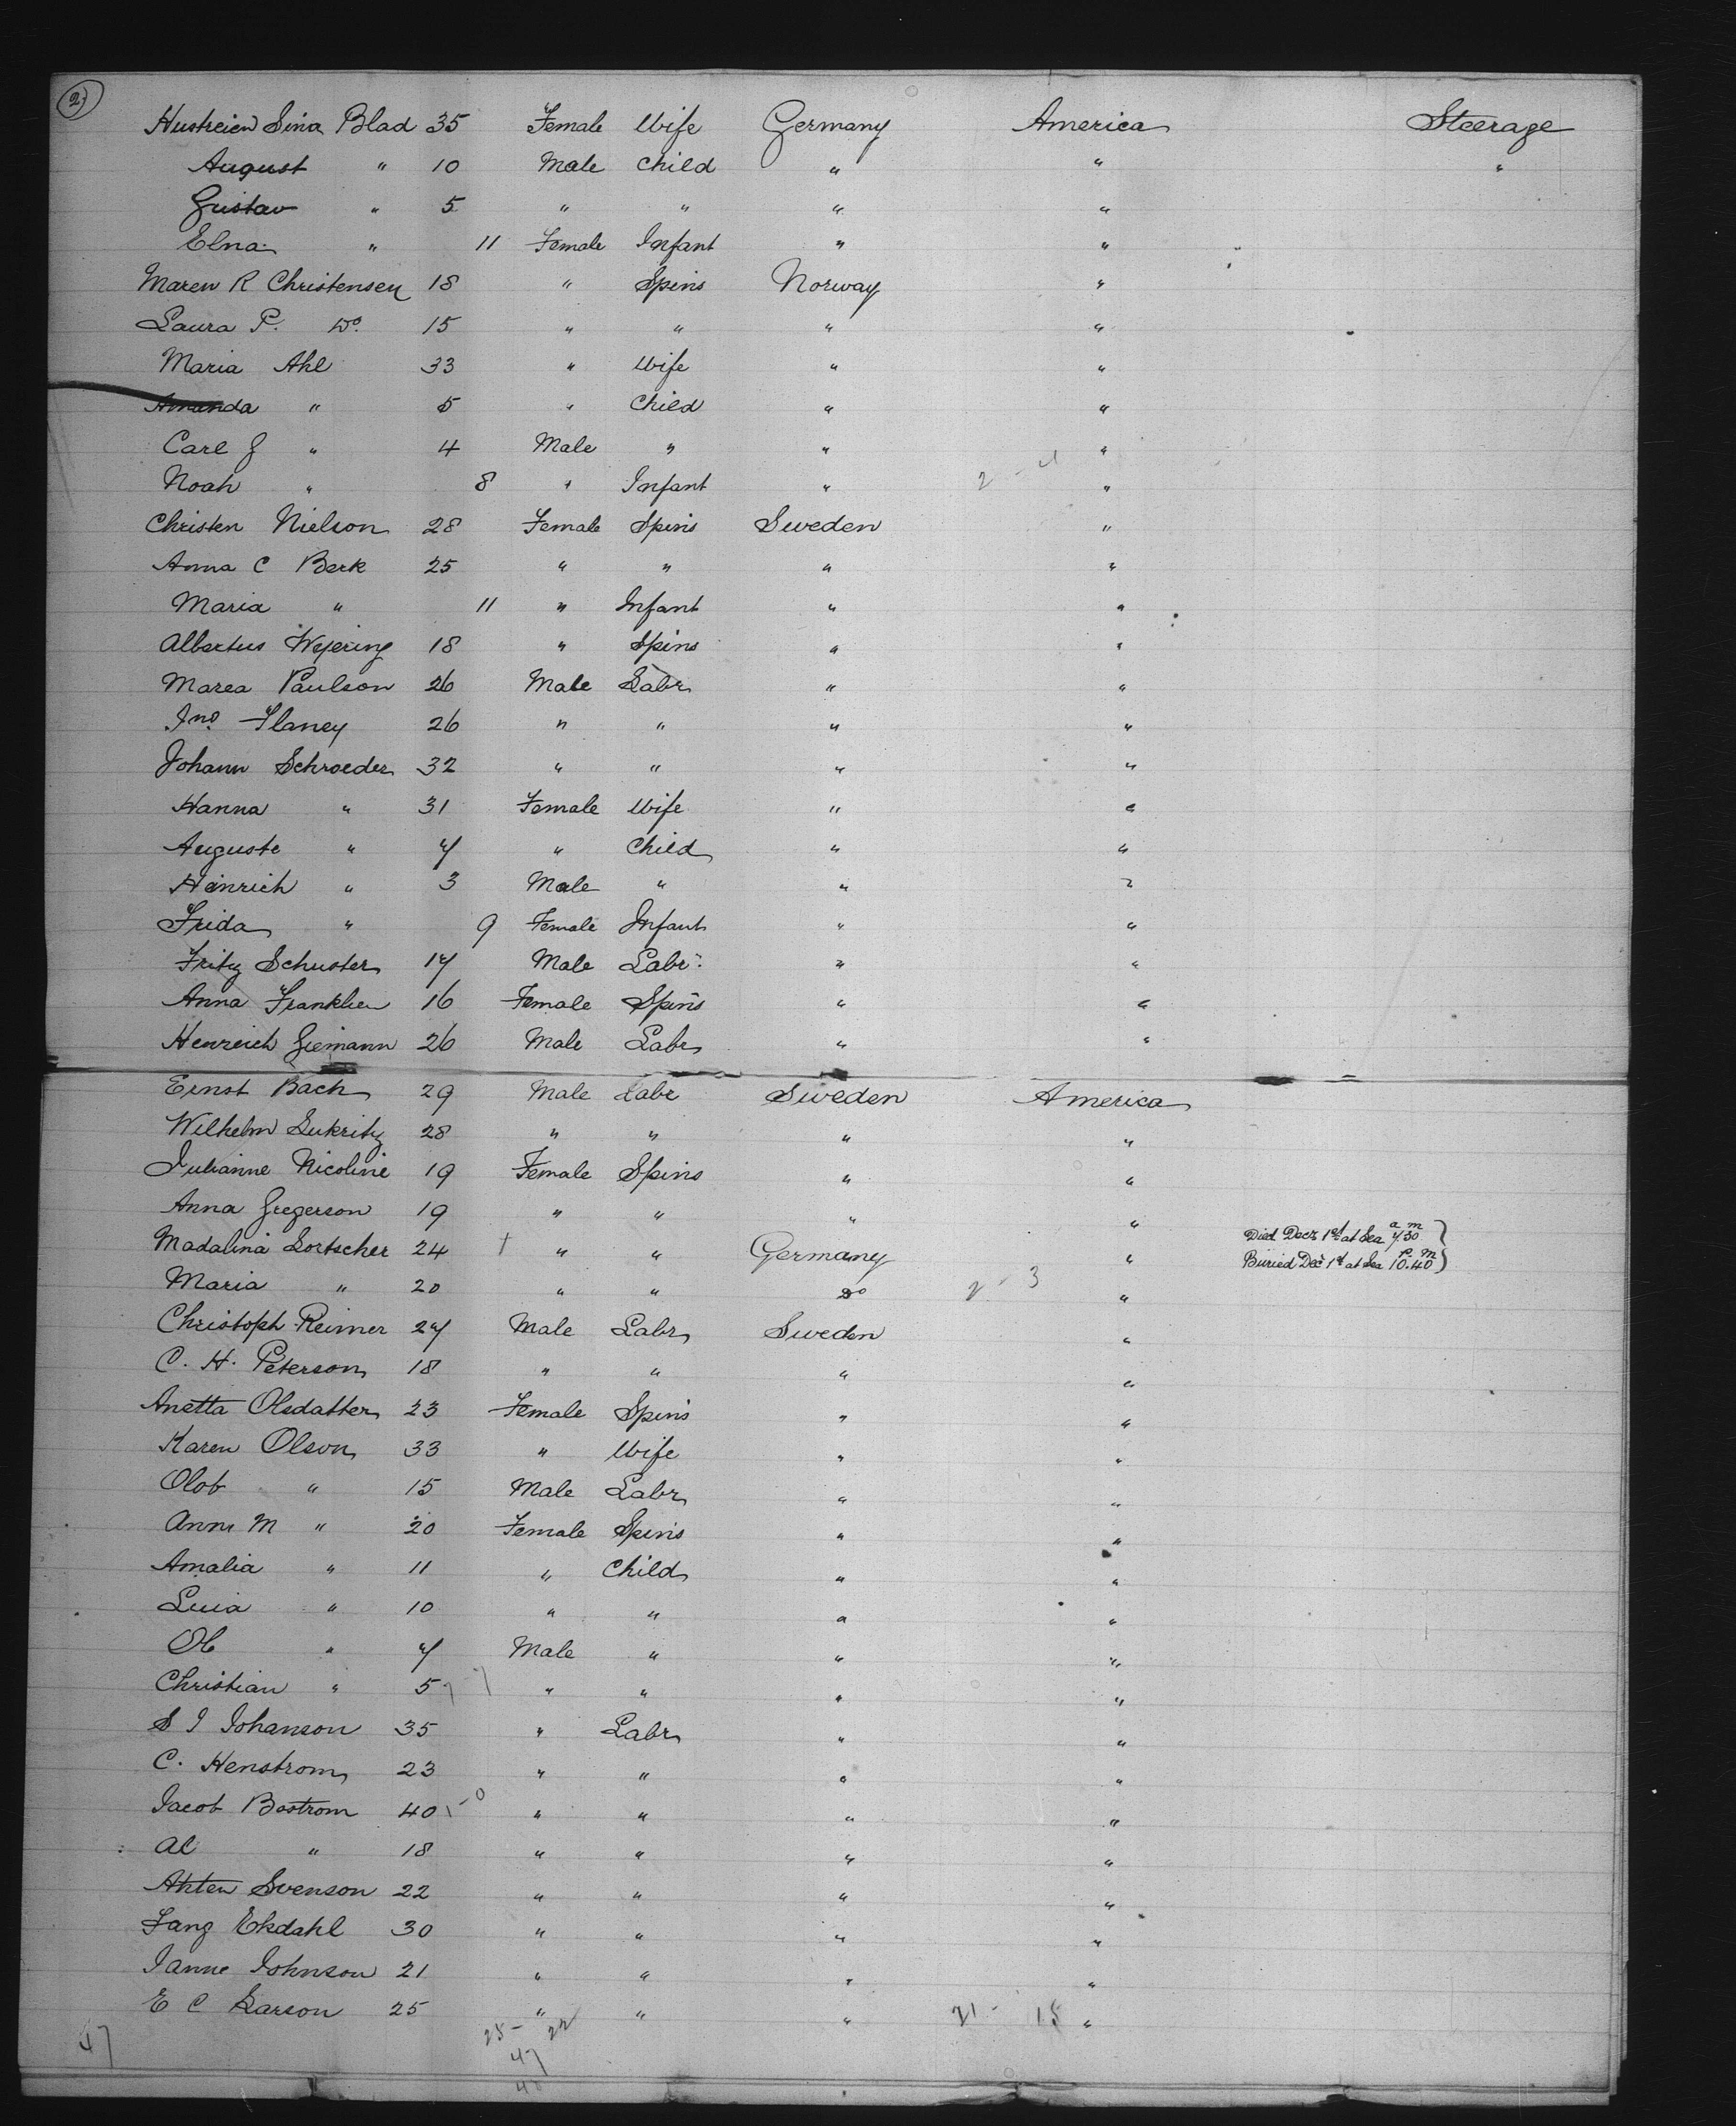 2)
Hustreien Sina Blad 35 Female Wife Germany America Steerage
August " 10 Male Child " " "
Gustav " 5 " " " "
Elna " 11 Female Infant " "
Maren R Christensen 18 " Spins Norway "
Laura P. Do. 15 " " " "
Maria Ahl 33 " Wife " "
Amanda " 5 " Child " "
Carl G " 4 Male " " "
Noah " 8 " Infant " "
Christen Nielson 28 Female Spins Sweden "
Anna C Berk 25 " " " "
Maria " 11 " Infant " "
Albertus Wejering 18 " Spins " "
Marea Paulson 26 Male Labr " "
Jno Flaney 26 " " " "
Johann Schroeder 32 " " " "
Hanna " 31 Female Wife " "
Auguste " 7 " Child " "
Heinrich " 3 Male " " "
Frida " 9 Female Infant " "
Fritz Schuster 17 Male Labr " "
Anna Franklien 16 Female Spins " "
Henreich Giemann 26 Male Labr " "
Ernst Bach 29 Male Labr Sweden America
Wilhelm Lukritz 28 " " " "
Julianne Nicoline 19 Female Spins " "
Anna Gregerson 19 " " " "
Madalina Lortscher 24 † " " Germany " Died Decr 1st at Sea 7.30 a m
Buried Decr 1st at Sea 10.40 P. M.
Maria " 20 " " Do 2 - 3 "
Christoph Reimer 27 Male Labr Sweden "
C. H. Peterson 18 " " " "
Anetta Olsdatter 23 Female Spins " "
Karen Olson 33 " Wife " "
Olof " 15 Male Labr " "
Ann M " 20 Female Spins " "
Amalia " 11 " Child " "
Luia " 10 " " " "
Ol " 7 Male " " "
Christian " 5 " " " "
S I Johanson 35 " Labr " "
C. Henstrom 23 " " " "
Jacob Bostrom 40 " " " "
Al " 18 " " " "
Ahten Svenson 22 " " " "
Lang Ekdahl 30 " " " "
Janne Johnson 21 " " " "
E C Larson 25 " " " 21 - 15 "
25 - 22
47 47